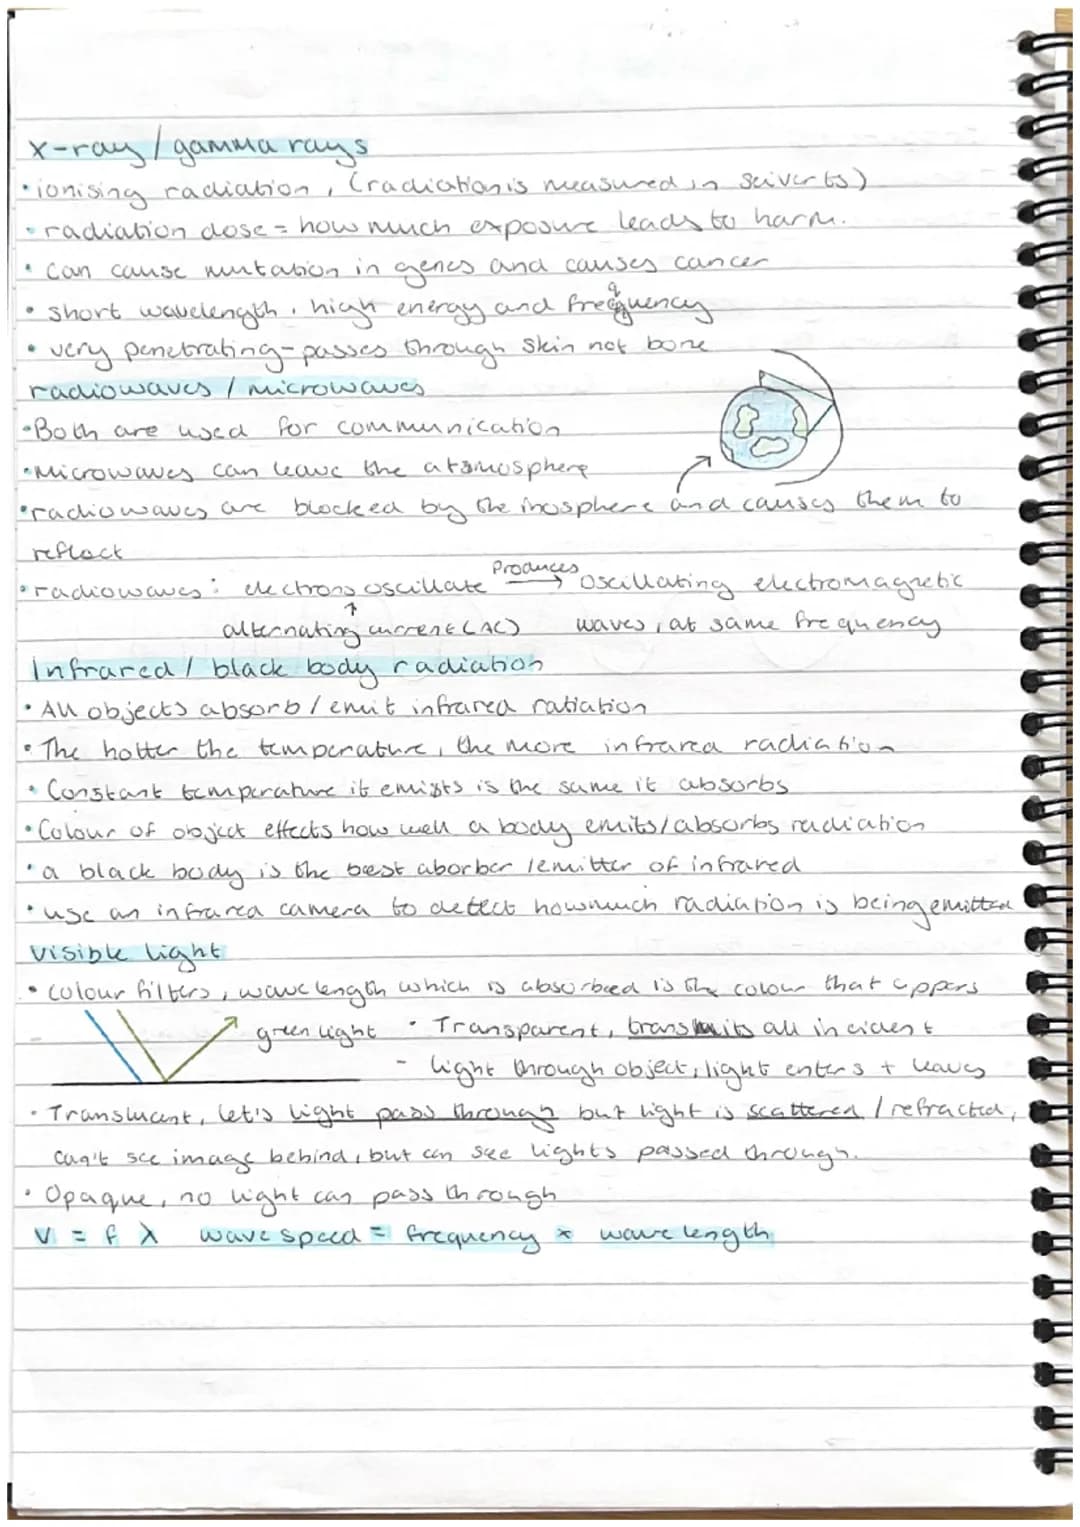 x-ray / gamma rays
• ionising radiation, (radiation is measured in seiverts)
• radiation dose = how much exposure leads to harm.
• can cause mutation in genes and causes cancer
• short wavelength, high energy and frequency
q
• very penetrating - passes through skin not bone
radiowaves / microwaves
• Both are used for communication
• Microwaves can leave the atomosphere
• radiowaves are blocked by the inosphere and causes them to
reflect
• radiowaves: electrons oscillate Produces → oscillating electromagnetic
↑
alternating current (AC) waves, at same frequency
Infrared / black body radiation
• All objects absorb / emit infrared ratiation
• The hotter the temperature, the more infrared radiation
• Constant temperature it emists is the same it absorbs
• Colour of object effects how well a body emits/absorbs radiation
• a black body is the best aborber /emitter of infrared
• use an infrared camera to detect how much radiation is being emitted
visible light
• colour filters, wavelength which is absorbed is the colour that appers
green light • Transparent, transmits all incident
- light through object, light enters + leaves
• Translucent, let's light pass through but light is scattered / refracted,
can't see image behind, but can see lights passed through.
• Opaque, no light can pass through
V = f λ wave speed = frequency × wave length